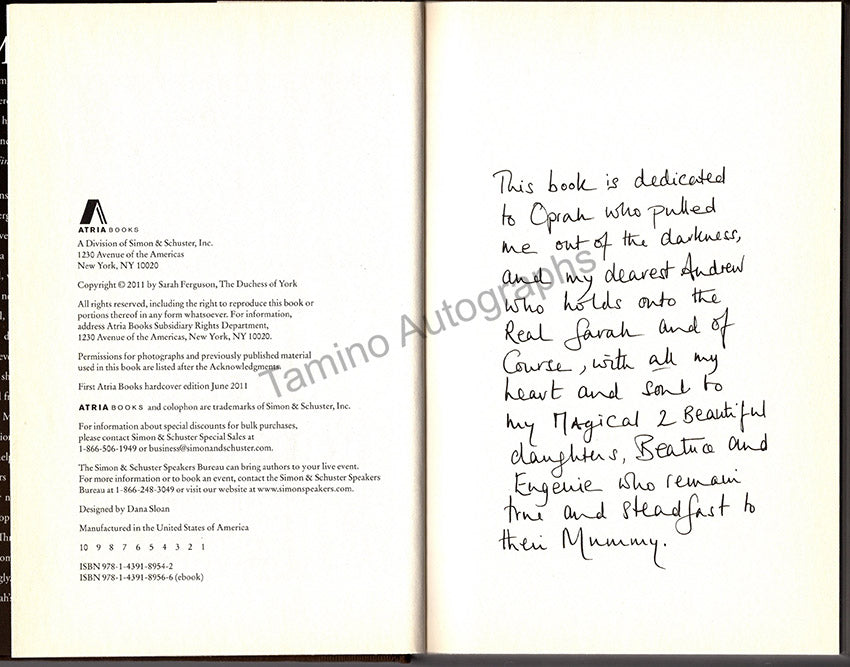 ATRIA BOOKS
A Division of Simon & Schuster, Inc.
1230 Avenue of the Americas
New York, NY 10020
Copyright © 2011 by Sarah Ferguson, The Duchess of York
All rights reserved, including the right to reproduce this book or
portions thereof in any form whatsoever. For information,
address Atria Books Subsidiary Rights Department,
1230 Avenue of the Americas, New York, NY 10020.
Permissions for photographs and previously published material
used in this book are listed after the Acknowledgments.
First Atria Books hardcover edition June 2011
ATRIA BOOKS and colophon are trademarks of Simon & Schuster, Inc.
For information about special discounts for bulk purchases,
please contact Simon & Schuster Special Sales at
1-866-506-1949 or business@simonandschuster.com.
The Simon & Schuster Speakers Bureau can bring authors to your live event.
For more information or to book an event, contact the Simon & Schuster Speakers
Bureau at 1-866-248-3049 or visit our website at www.simonspeakers.com.
Designed by Dana Sloan
Manufactured in the United States of America
10 9 8 7 6 5 4 3 2 1
ISBN 978-1-4391-8954-2
ISBN 978-1-4391-8956-6 (ebook)
This book is dedicated
to Oprah who pulled
me out of the darkness,
and my dearest Andrew
who holds onto the
Real Sarah and of
Course, with all my
heart and soul to
my Magical 2 Beautiful
daughters, Beatrice and
Eugenie who remain
true and steadfast to
their Mummy.
Tamino Autographs